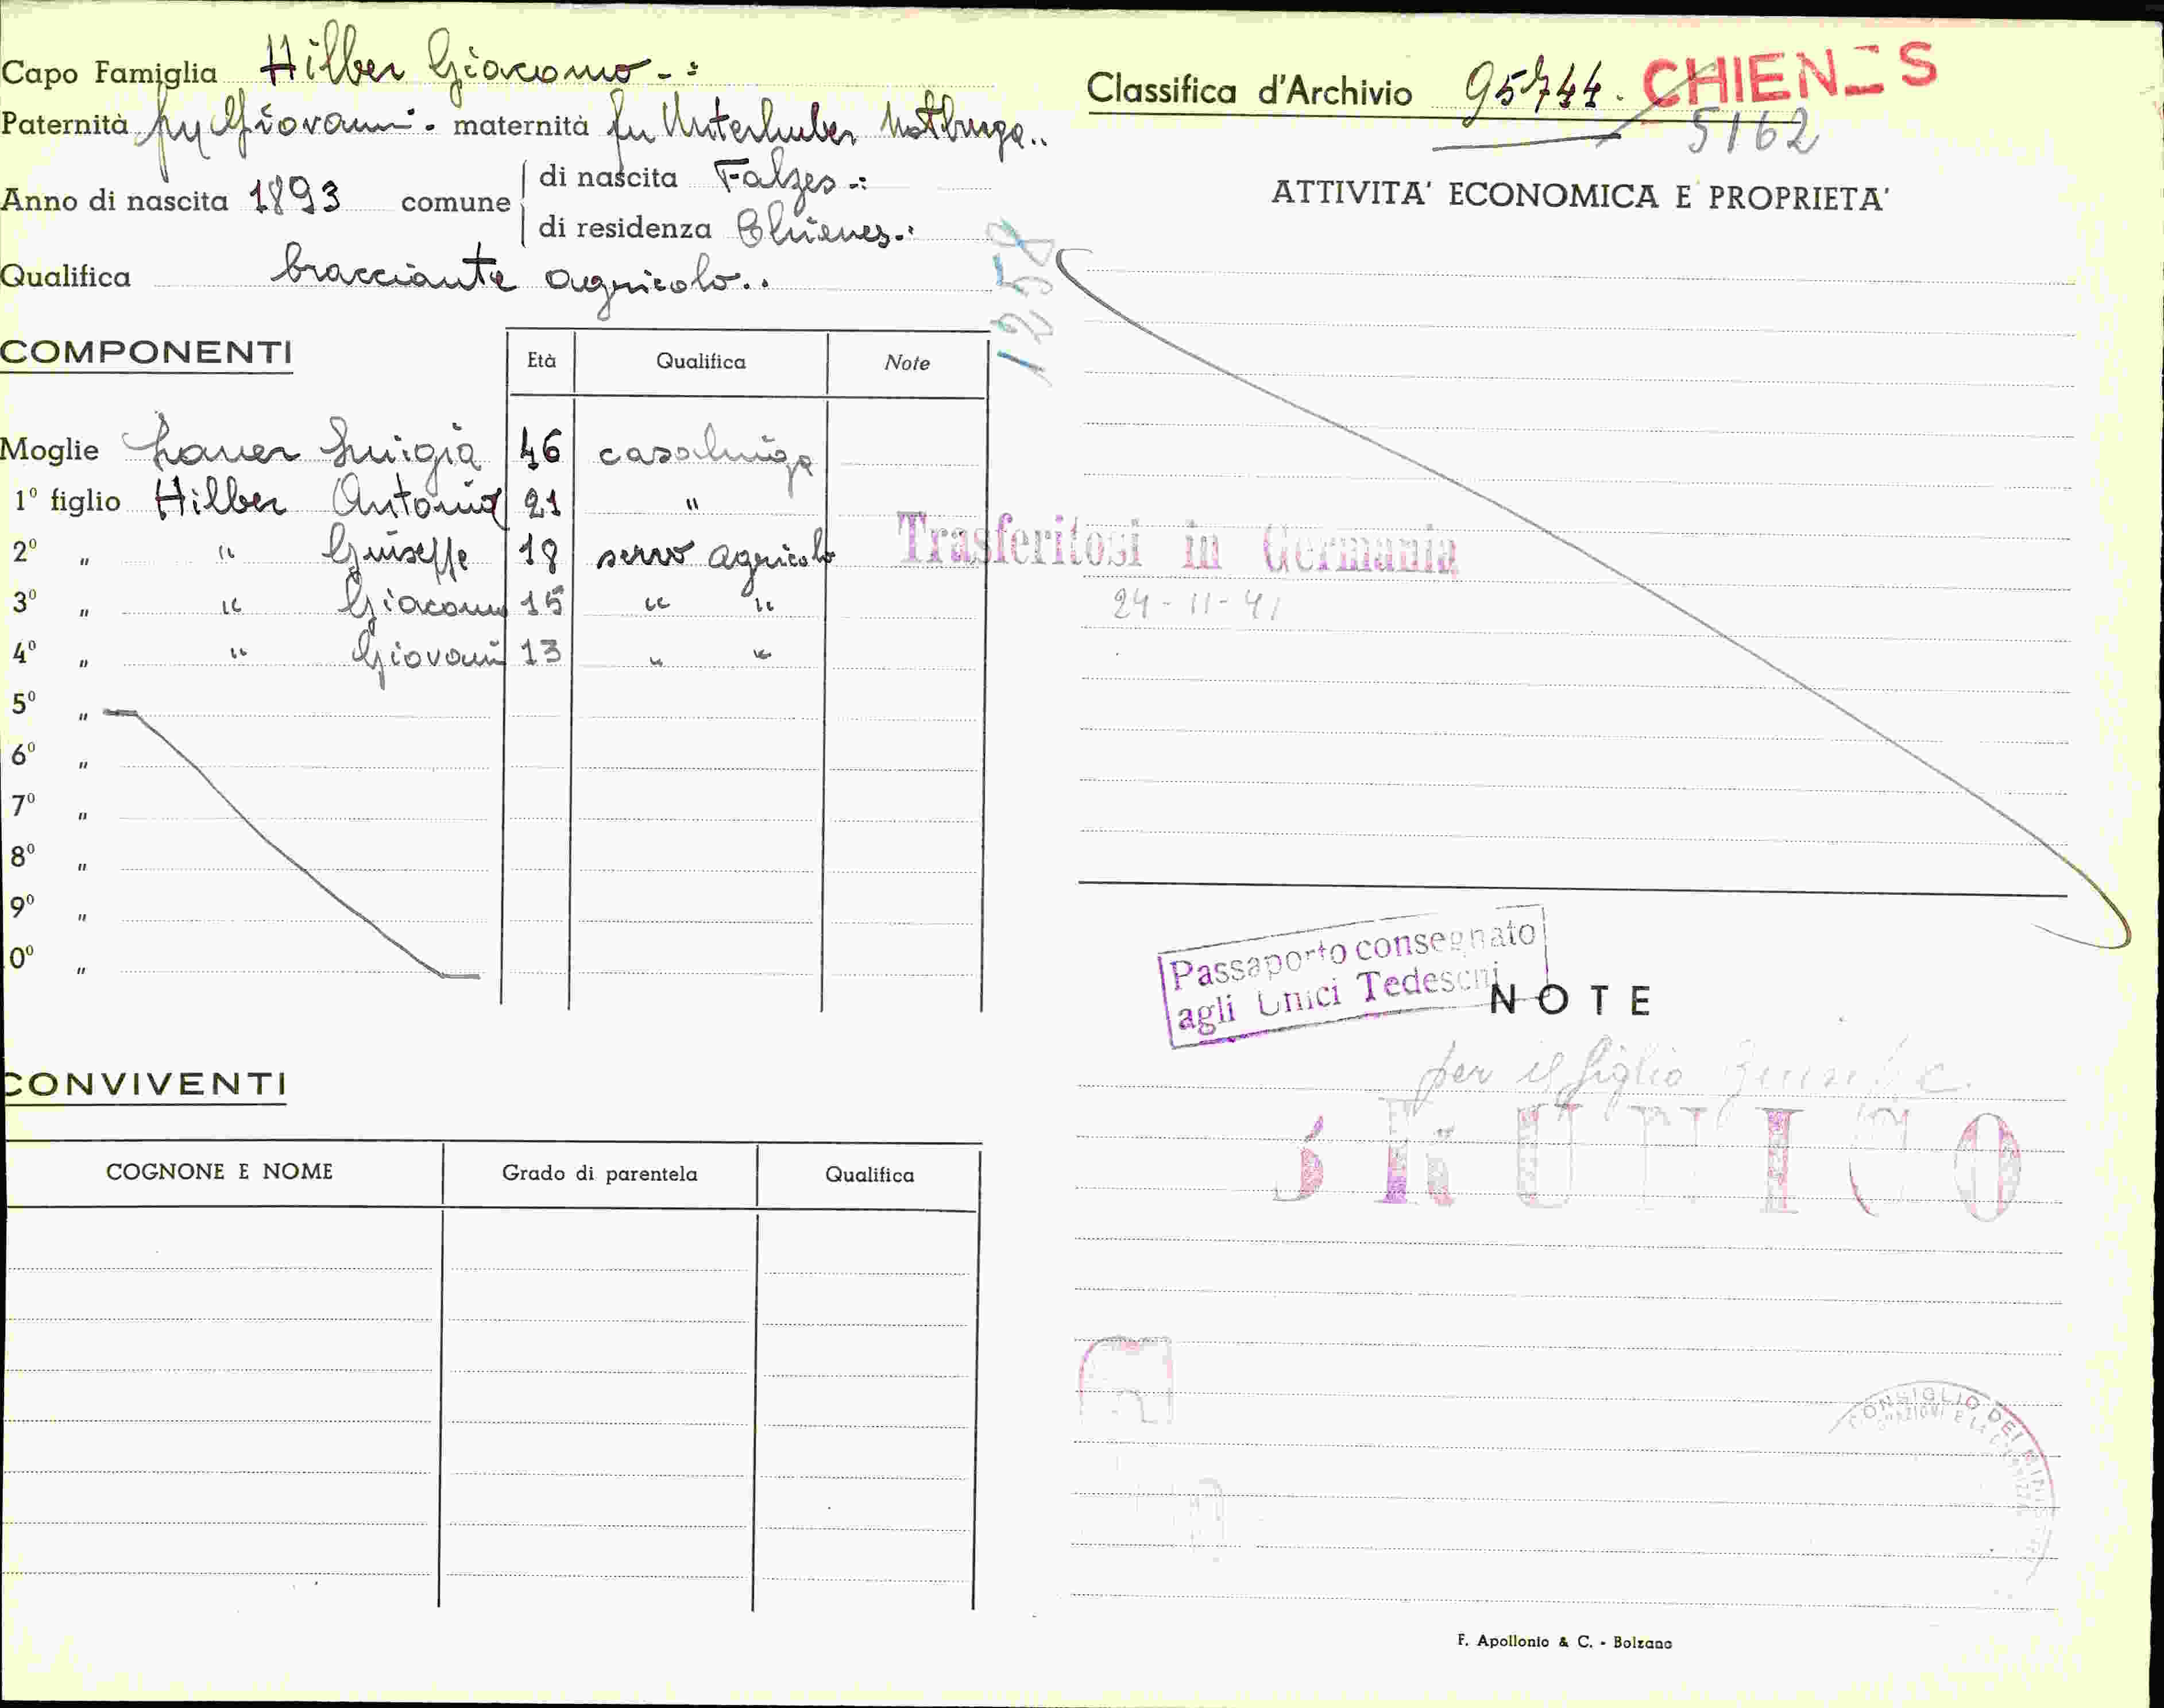 Capo Famiglia Hilber Giacomo -:
Paternità fu Giovanni. maternità fu Unterhuber Notburga..
Anno di nascita 1893 comune
di nascita Falzes -:
di residenza Chienes -:
Qualifica bracciante agricolo..
COMPONENTI
Età Qualifica Note
Moglie Luigia 46 casalinga
1º figlio Hilber Antonia 21 "
2º " " Giuseppe 18 servo agricolo
3º " " Giacomo 15 " "
4º " " Giovanni 13 " "
5º "
6º "
7º "
8º "
9º "
0º "
CONVIVENTI
COGNONE E NOME Grado di parentela Qualifica
1258
Classifica d'Archivio 95744. CHIENES
5162
ATTIVITA' ECONOMICA E PROPRIETA'
Trasferitosi in Germania
24-11-41
Passaporto consegnato
agli Uffici Tedeschi
NOTE
per il figlio Giuseppe.
BRUNICO
CONSIGLIO DEI
F. Apollonio & C. - Bolzano